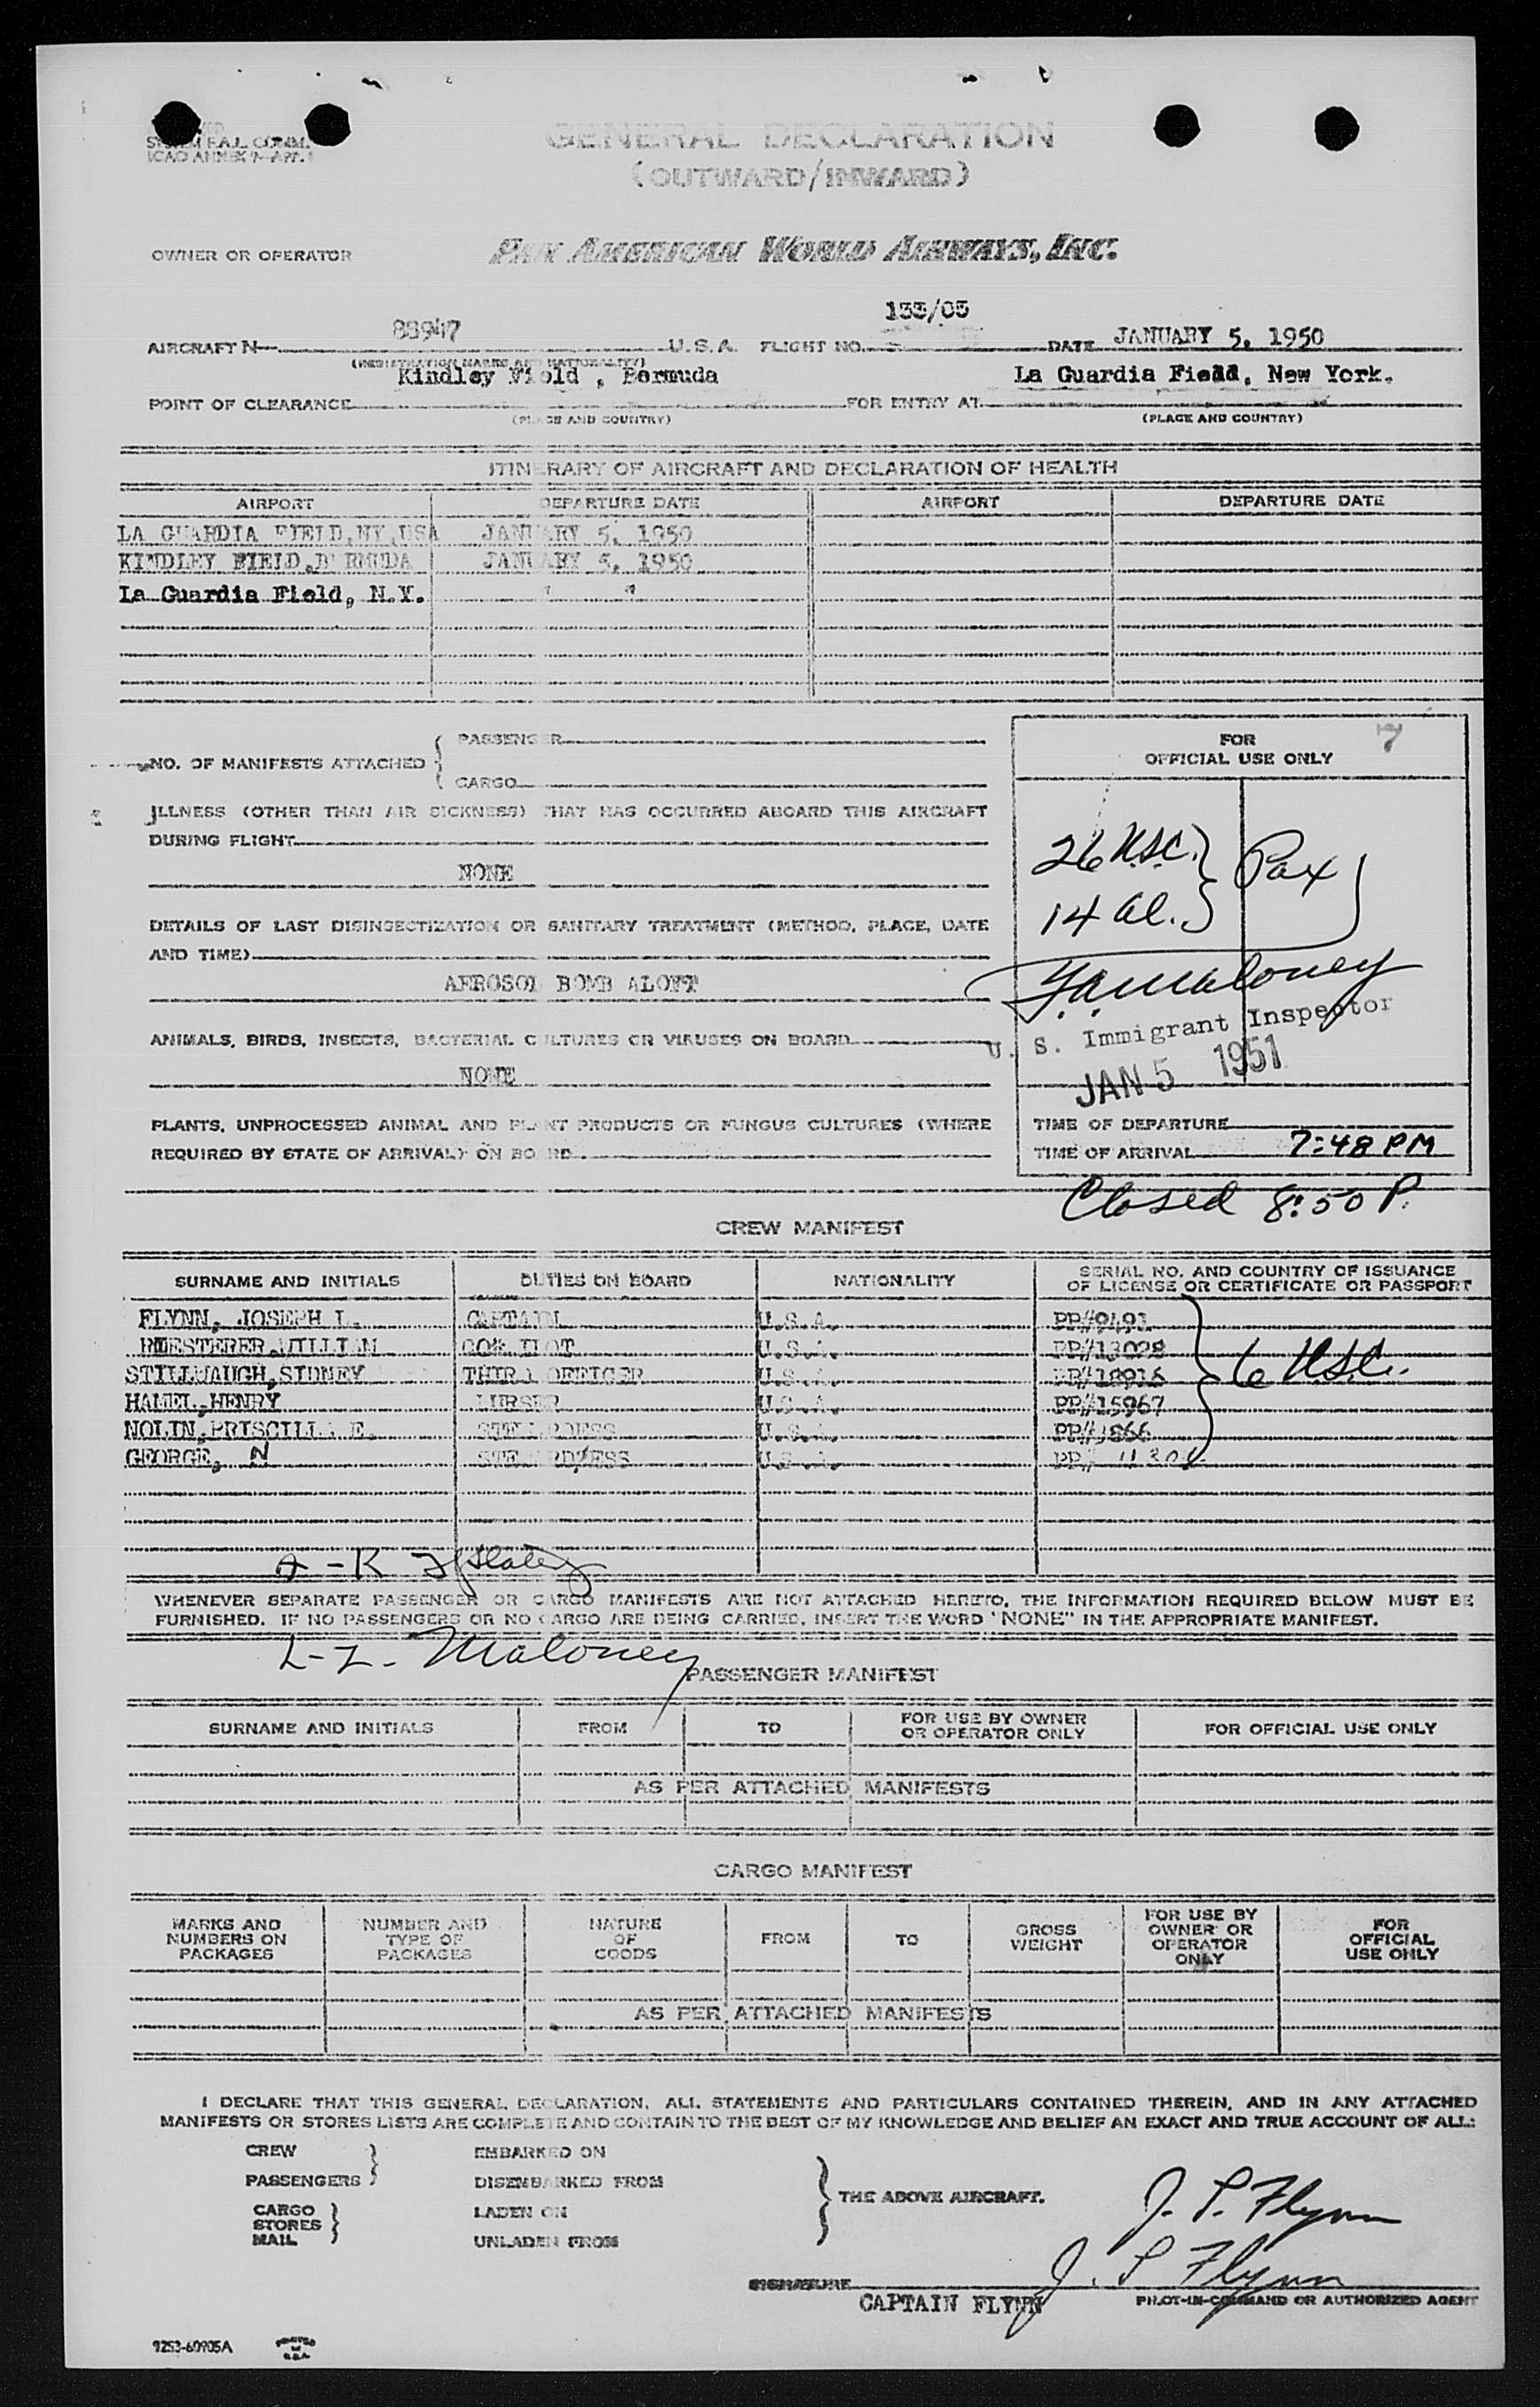 SYSTEM F.A.L. COMM.
ICAO ANNEX 9-APP. 1
GENERAL DECLARATION
(OUTWARD/INWARD)
OWNER OR OPERATOR PAN AMERICAN WORLD AIRWAYS, INC.
AIRCRAFT N- 88947 U.S.A. FLIGHT NO. 133/05 DATE JANUARY 5, 1950
(REGISTRATION MARKS AND NATIONALITY)
POINT OF CLEARANCE Kindley Field, Bermuda FOR ENTRY AT La Guardia Field, New York.
(PLACE AND COUNTRY) (PLACE AND COUNTRY)
ITINERARY OF AIRCRAFT AND DECLARATION OF HEALTH
AIRPORT DEPARTURE DATE AIRPORT DEPARTURE DATE
LA GUARDIA FIELD,NY,USA JANUARY 5, 1950
KINDLEY FIELD,BERMUDA JANUARY 5, 1950
La Guardia Field, N.Y. " "
NO. OF MANIFESTS ATTACHED { PASSENGER
CARGO
ILLNESS (OTHER THAN AIR SICKNESS) THAT HAS OCCURRED ABOARD THIS AIRCRAFT
DURING FLIGHT
NONE
DETAILS OF LAST DISINSECTIZATION OR SANITARY TREATMENT (METHOD, PLACE, DATE
AND TIME)
AEROSOL BOMB ALOFT
ANIMALS, BIRDS, INSECTS, BACTERIAL CULTURES OR VIRUSES ON BOARD
NONE
PLANTS, UNPROCESSED ANIMAL AND PLANT PRODUCTS OR FUNGUS CULTURES (WHERE
REQUIRED BY STATE OF ARRIVAL) ON BOARD
7
FOR
OFFICIAL USE ONLY
26 U.S.C. } Pax
14 al.
F.A. Maloney
U. S. Immigrant Inspector
JAN 5 1951
TIME OF DEPARTURE
TIME OF ARRIVAL 7:48 PM
Closed 8:50 P.
CREW MANIFEST
SURNAME AND INITIALS DUTIES ON BOARD NATIONALITY SERIAL NO. AND COUNTRY OF ISSUANCE
OF LICENSE OR CERTIFICATE OR PASSPORT
FLYNN, JOSEPH L. CAPTAIN U.S.A. PP#9491
WILLIAM U.S.A. PP#13028
STILLWAUGH,SIDNEY THIRD OFFICER U.S.A. PP#18916
HAMEL,HENRY PURSER U.S.A. PP#15967
NOLIN,PRISCILLA E. STEWARDESS U.S.A.
GEORGE, N STEWARDESS U.S.A. PP#
6 U.S.C.
A-K
WHENEVER SEPARATE PASSENGER OR CARGO MANIFESTS ARE NOT ATTACHED HERETO, THE INFORMATION REQUIRED BELOW MUST BE
FURNISHED. IF NO PASSENGERS OR NO CARGO ARE BEING CARRIED, INSERT THE WORD "NONE" IN THE APPROPRIATE MANIFEST.
L-Z. Maloney
PASSENGER MANIFEST
SURNAME AND INITIALS FROM TO FOR USE BY OWNER
OR OPERATOR ONLY FOR OFFICIAL USE ONLY
AS PER ATTACHED MANIFESTS
CARGO MANIFEST
MARKS AND
NUMBERS ON
PACKAGES NUMBER AND
TYPE OF
PACKAGES NATURE
OF
GOODS FROM TO GROSS
WEIGHT FOR USE BY
OWNER OR
OPERATOR
ONLY FOR
OFFICIAL
USE ONLY
AS PER ATTACHED MANIFESTS
I DECLARE THAT THIS GENERAL DECLARATION, ALL STATEMENTS AND PARTICULARS CONTAINED THEREIN, AND IN ANY ATTACHED
MANIFESTS OR STORES LISTS ARE COMPLETE AND CONTAIN TO THE BEST OF MY KNOWLEDGE AND BELIEF AN EXACT AND TRUE ACCOUNT OF ALL:
CREW EMBARKED ON
PASSENGERS DISEMBARKED FROM
CARGO
STORES
MAIL
LADEN ON
UNLADEN FROM
THE ABOVE AIRCRAFT.
J. L. Flynn
SIGNATURE J. L Flynn
CAPTAIN FLYNN PILOT-IN-COMMAND OR AUTHORIZED AGENT
9253-60905A PRINTED
IN
U.S.A.